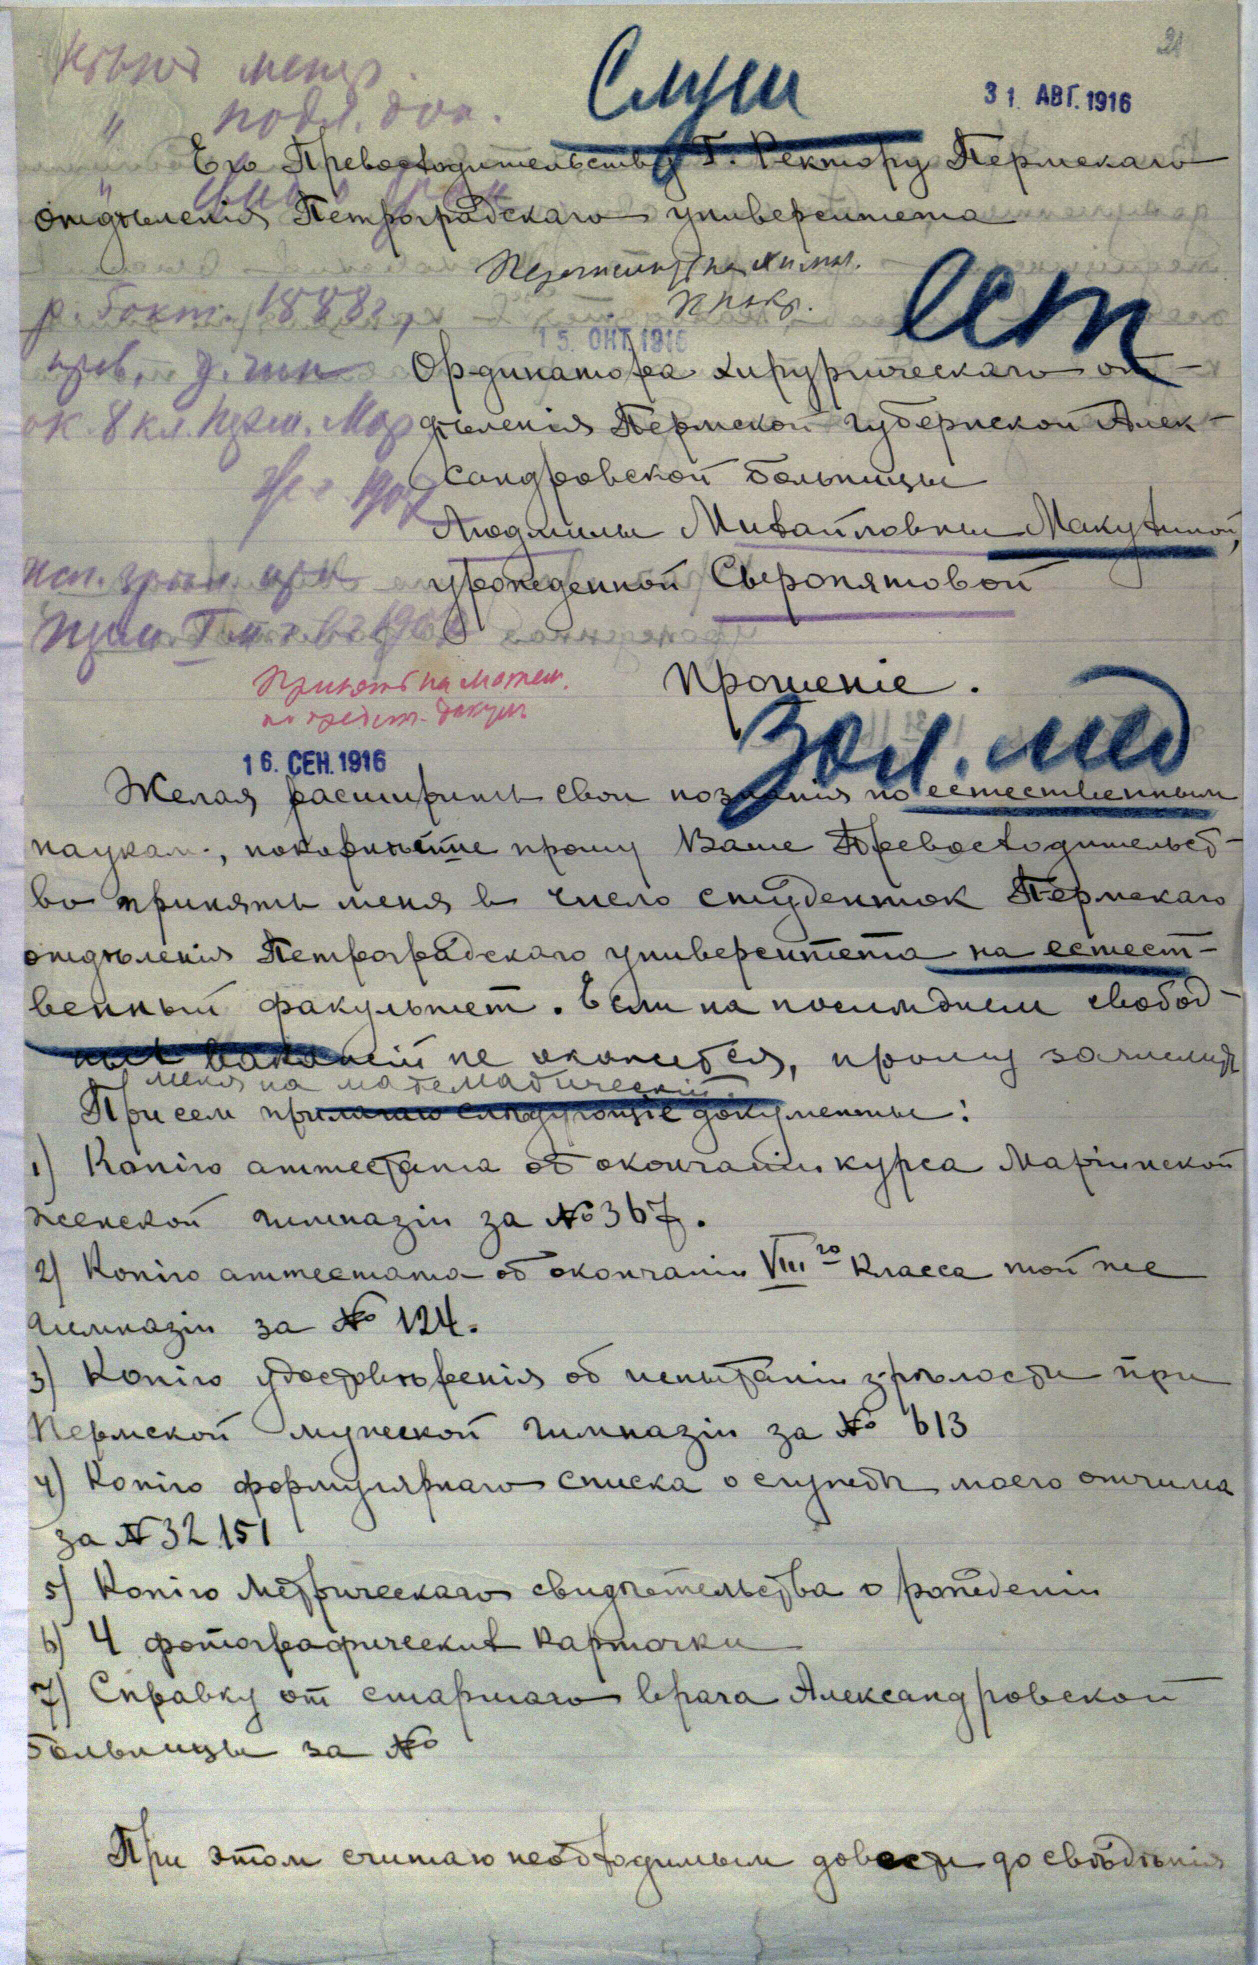 21
Слуш
31. АВГ. 1916
подл. док.
Его Превосходительству Г. Ректору Пермскаго
отдѣленія Петроградскаго университета
р. 1888 г.,
15. ОКТ. 1916
ест
Ординатора хирургическаго от-
дѣленія Пермской губернской Алек-
сандровской больницы
Людмилы Михайловны Макухиной,
урожденной Сыропятовой
ок. 8 кл. Перм. Мар
Принять на матем.
по предст. докум.
Прошеніе.
зол. мед
16. СЕН. 1916
Желая расширить свои познанія по естественным
наукам, покорнѣйше прошу Ваше Превосходительст-
во принять меня в число студенток Пермскаго
отдѣленія Петроградскаго университета на естест-
венный факультет. Если на посимднем свобод-
ных вакансій не окажется, прошу зачислить
меня на математическій
При сем прилагаю слѣдующіе документы:
1) Копію аттестата об окончаніи курса Маріинской
женской гимназіи за № 367.
2) Копію аттестата об окончаніи VIII го класса той же
гимназіи за № 124.
3) Копію удостовѣренія об испытаніи зрѣлости при
Пермской мужской гимназіи за № 613
4) Копію формулярнаго списка о службѣ моего отчима
за № 32151
5) Копію метрическаго свидѣтельства о рожденіи
6) 4 фотографических карточки
7) Справку от старшаго врача Александровской
больницы за №
При этом считаю необходимым довести до свѣдѣнія